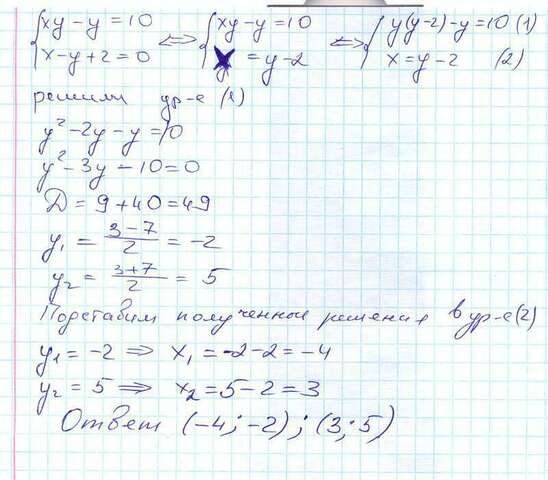 {xy-y=10 x-y+2=0 <=> {xy-y=10 x=y-2 <=> {y(y-2)-y=10 (1) x=y-2 (2)
решили ур-е (1)
y²-2y-y=10
y²-3y-10=0
D=9+40=49
y₁=(3-7)/2=-2
y₂=(3+7)/2=5
Подставим полученные решения в ур-е(2)
y₁=-2 => x₁=-2-2=-4
y₂=5 => x₂=5-2=3
Ответ (-4;-2);(3;5)